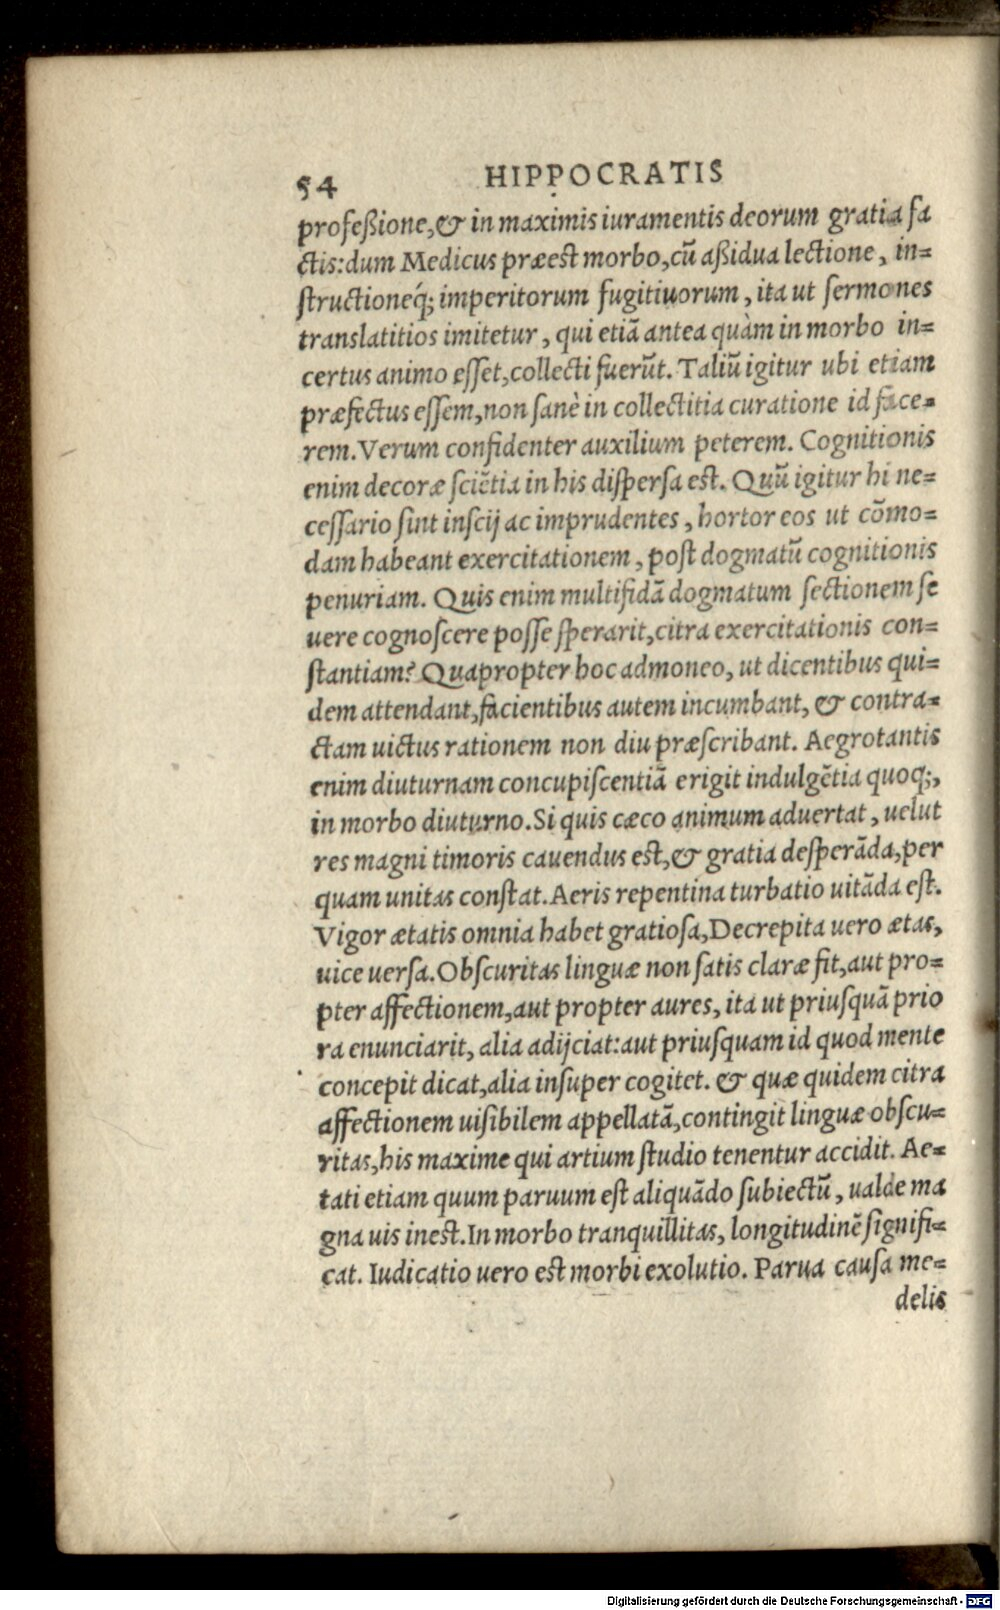 54 HIPPOCRATIS
profeßione,& in maximis iuramentis deorum gratia fa
ctis:dum Medicus præest morbo,cū aßidua lectione, in=
structioneq́; imperitorum fugitiuorum, ita ut sermones
translatitios imitetur, qui etiā antea quàm in morbo in=
certus animo esset,collecti fuerūt. Taliū igitur ubi etiam
præfectus essem,non sanè in collectitia curatione id face=
rem.Verum confidenter auxilium peterem. Cognitionis
enim decoræ sciẽtia in his dispersa est. Quū igitur hi ne=
cessario sint inscij ac imprudentes, hortor eos ut cōmo=
dam habeant exercitationem, post dogmatū cognitionis
penuriam. Quis enim multifidā dogmatum sectionem se
uere cognoscere posse sperarit,citra exercitationis con=
stantiam? Quapropter hoc admoneo, ut dicentibus qui=
dem attendant,facientibus autem incumbant, & contra=
ctam uictus rationem non diu præscribant. Aegrotantis
enim diuturnam concupiscentiā erigit indulgẽtia quoq;,
in morbo diuturno.Si quis cæco animum aduertat, uelut
res magni timoris cauendus est,& gratia desperāda,per
quam unitas constat.Aeris repentina turbatio uitāda est.
Vigor ætatis omnia habet gratiosa,Decrepita uero ætas,
uice uersa.Obscuritas linguæ non satis claræ fit,aut pro=
pter affectionem,aut propter aures, ita ut priusquā prio
ra enunciarit, alia adijciat:aut priusquam id quod mente
concepit dicat,alia insuper cogitet. & quæ quidem citra
affectionem uisibilem appellatā,contingit linguæ obscu=
ritas,his maxime qui artium studio tenentur accidit. Ae=
tati etiam quum paruum est aliquādo subiectū, ualde ma
gna uis inest.In morbo tranquillitas, longitudinẽ signifi=
cat. Iudicatio uero est morbi exolutio. Parua causa me=
delis
Digitalisierung gefördert durch die Deutsche Forschungsgemeinschaft - DFG